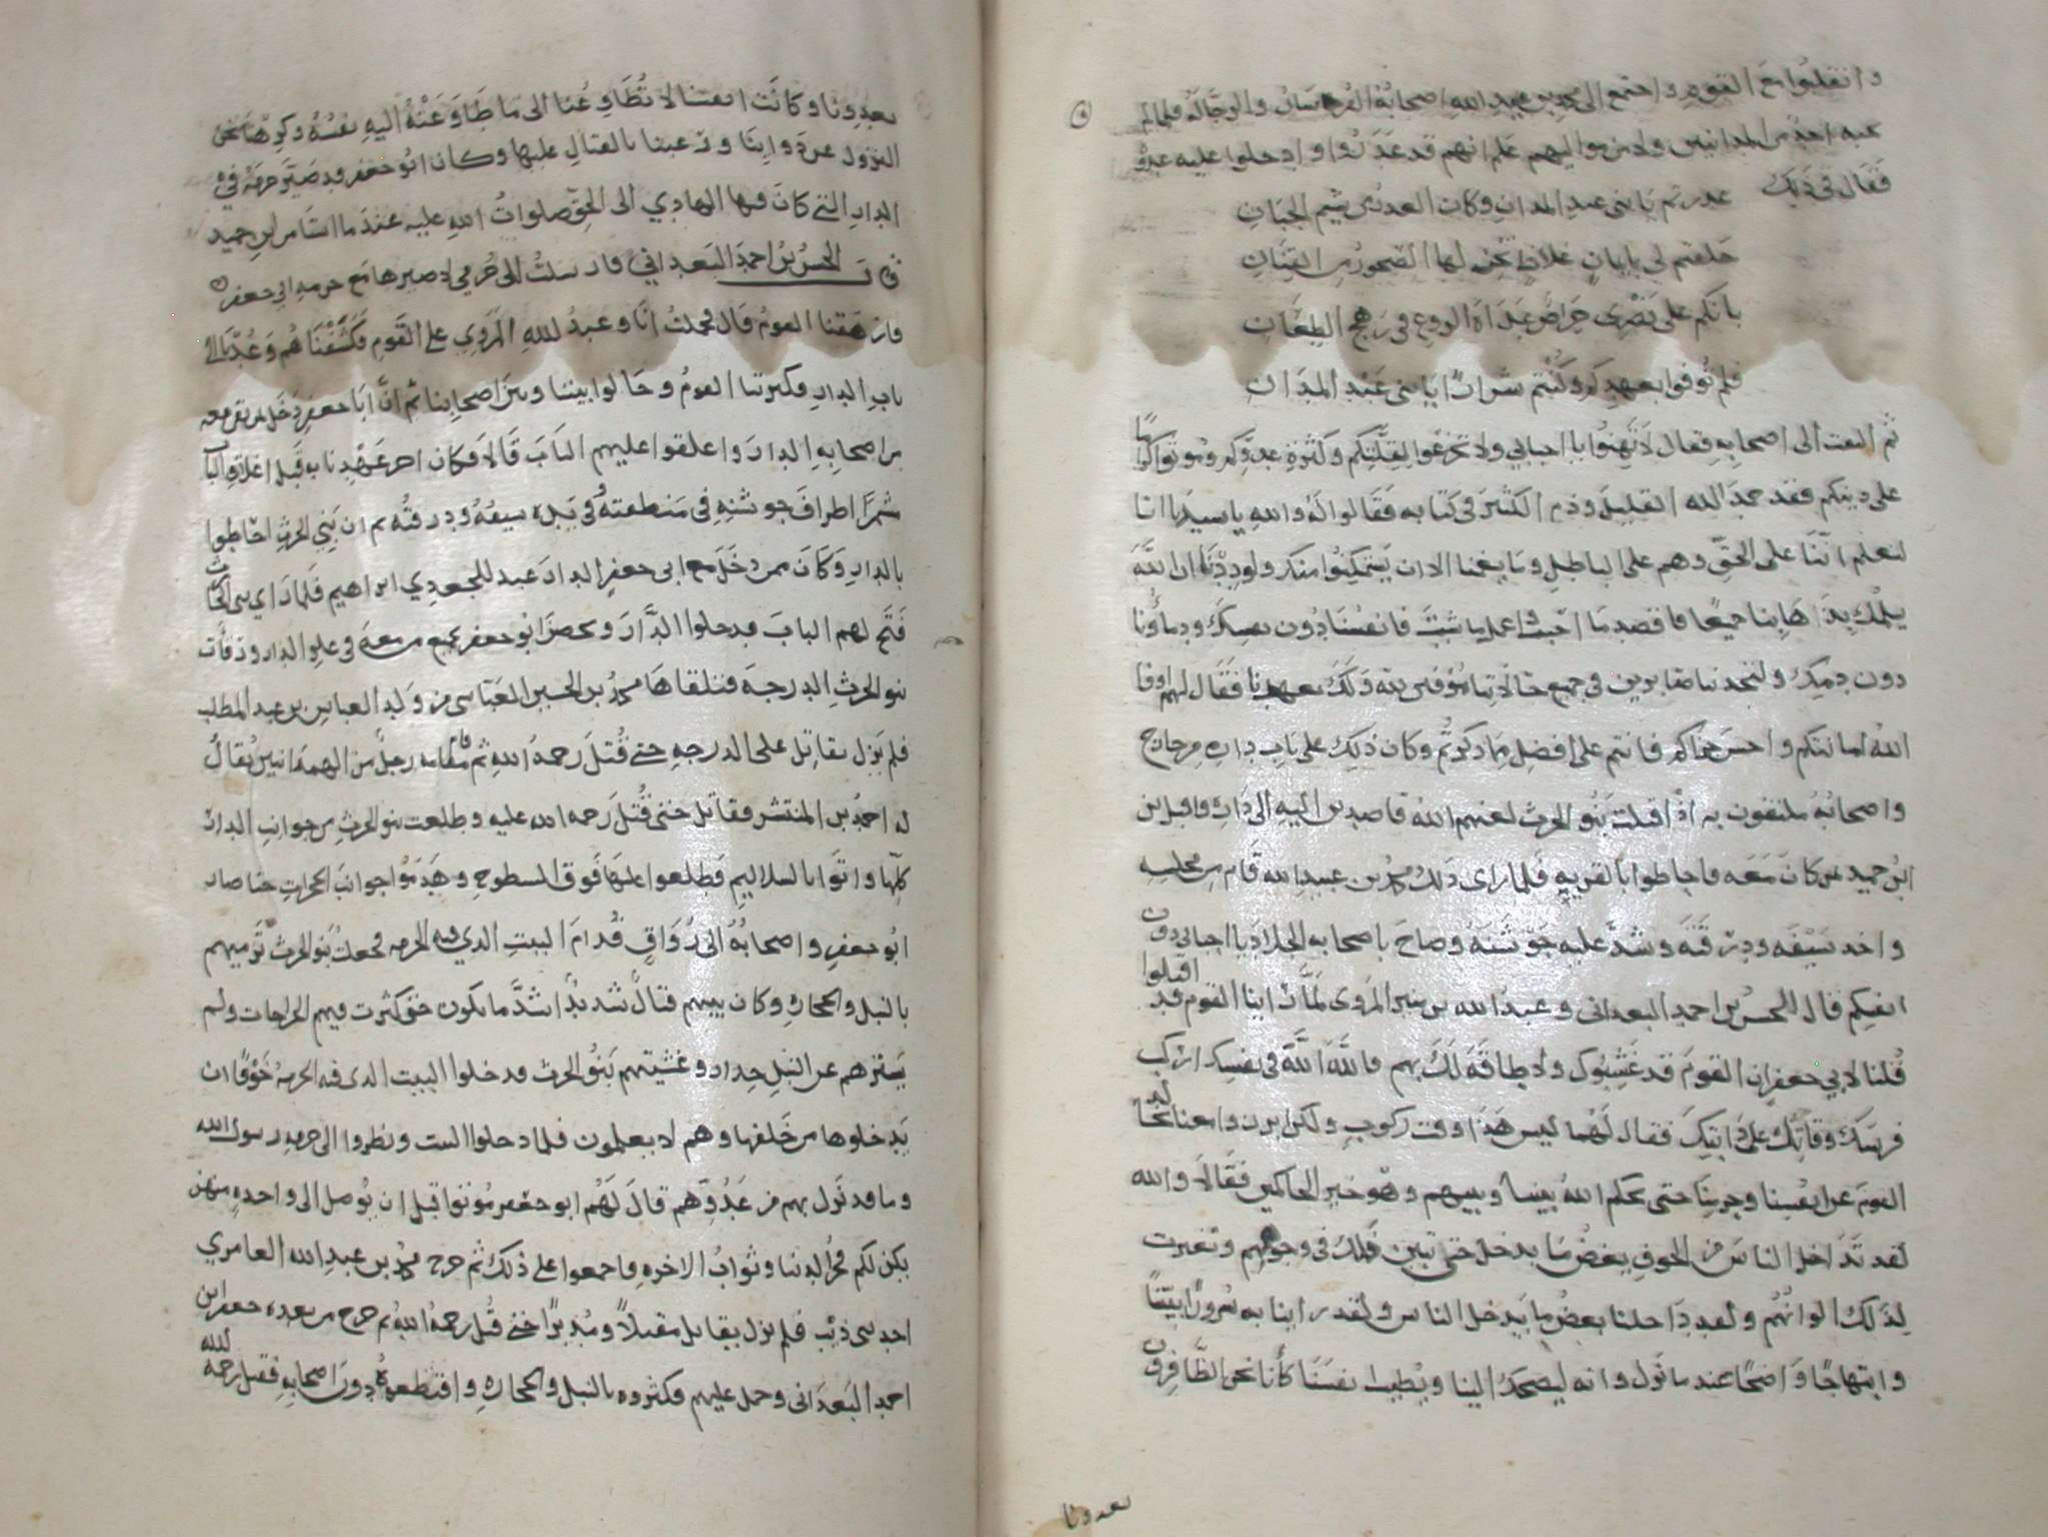 وانقلبوا مع القوم واجتمع الى محمد بن عبيد الله اصحابه الفرسان والرجالة فلما لم
عليه احد من المدانيين ولا من مواليهم علم انهم قد غدروا وادخلوا عليه عدوه
فقال في ذلك غدرتم يا بني عبد المدان وكان الغدر من شيم الجبان
حلفتم لي بايمان غلاظ تخر لها الصخور من القنان
بانكم على نصري حراص غداة الروع في رهج الطعان
فلم توفوا بعهدكم وكنتم شرارا يا بني عبد المدان
ثم التفت الى اصحابه فقال لا تهنوا يا احبابي ولا تجزعوا لقلتكم وكثرة عدوكم وموتوا كراما
على دينكم فقد حمد الله القليل وذم الكثير في كتابه فقالوا له والله يا سيدنا انا
لنعلم اننا على الحق وهم على الباطل وما يغمنا الا ان يتمكنوا منك ولوددنا ان الله
يسلمك بذهابنا جميعا فاقصد ما احببت واعمل ما شئت فانفسنا دون نفسك ودماؤنا
دون دمك ولتجدنا صابرين في جميع حالاتنا موفين لله ولك بعهدنا فقال لهم اوفا
الله امانتكم واحسن جزاكم فانتم على افضل ما ذكرتم وكان ذلك على باب داره من خارج
واصحابه ملتفون به اذ اقبلت بنو الحرث لعنهم الله قاصدين اليه الى داره واقبل ابن
ابن حميد من كان معه فاحاطوا بالقرية فلما راى ذلك محمد بن عبيد الله قام من مجلسه
واخذ سيفه ودرقته وشد عليه جوشنه وصاح باصحابه الجلاد يا احبابي دون
انفسكم قال الحسن بن احمد البعداني وعبد الله بن المروي لما راينا القوم قد اقبلوا
قلنا لابي جعفر ان القوم قد غشوك ولا طاقة لك بهم فالله الله في نفسك اركب
فرسك وقاتل على دابتك فقال لهما ليس هذا وقت ركوب ولكن ابرزوا معنا نجالد
القوم عن انفسنا وحرمنا حتى يحكم الله بيننا وبينهم وهو خير الحاكمين فقالا والله
لقد تداخل الناس من الخوف بعض ما يدخل حتى تبين ذلك في وجوههم وتغيرت
لذلك الوانهم ولقد داخلنا بعض ما يدخل الناس ولقد راينا به سرورا بينا
وابتهاجا واضحا عند ما نزل وانه ليضحك الينا ويطيب نفسنا كانا نحن الظافرون
بعدونا
بعدونا وكانت انفسنا لا تطاوعنا الى ما طاوعته اليه نفسه وكرهنا نحن
النزول عن دوابنا ورغبنا بالقتال عليها وكان ابو جعفر قد صير حرمه في
الدار التي كان فيها الهادي الى الحق صلوات الله عليه عند ما استامر ابن حميد
قال الحسن بن احمد البعداني فارسلت الى حرمي اصيرها مع حرمة ابي جعفر
فارهقنا القوم قال فحملت انا وعبد الله المروي على القوم فكشفناهم وعدنا الى
باب الدار وكثرتنا القوم وحالوا بيننا وبين اصحابنا ثم ان ابا جعفر دخل بمن بقي معه
من اصحابه الدار واغلقوا عليهم الباب قالا فكان اخر عهدنا به قبل اغلاق الباب
مشمرا اطراف جوشنه في منطقته في يده سيفه ودرقته ثم ان بني الحرث احاطوا
بالدار وكان ممن دخل مع ابي جعفر الدار عبد للجعدي ابراهيم فلما راى بني الحارث
فتح لهم الباب فدخلوا الدار وتحصن ابو جعفر بجميع من معه في علو الدار ورقات
بنو الحرث الدرجة فتلقاها محمد بن الحسين العباسي من ولد العباس بن عبد المطلب
فلم يزل يقاتل على الدرجة حتى قتل رحمه الله ثم قام مقامه رجل من الهمدانيين يقال
له احمد بن المنتشر فقاتل حتى قتل رحمه الله عليه وطلعت بنو الحرث من جوانب الدار
كلها واتوا بالسلاليم فطلعوا عليها فوق السطوح وهدموا جوانب الحجرات حتا صار
ابو جعفر واصحابه الى رواق قدام البيت الذي فيه الحرمة فجعلت بنو الحرث ترميهم
بالنبل والحجارة وكان بينهم قتال شديدا اشد ما يكون حتى كثرت فيهم الجراحات ولم
يسترهم عن النبل جدار وغشيتهم بنو الحرث فدخلوا البيت الذي فيه الحرمة خوفا ان
يدخلوها من خلفها وهم لا يعلمون فلما دخلوا البيت ونظروا الى حرمة رسول الله
وما قد نزل بهم من عدوهم قال لهم ابو جعفر موتوا قبل ان يوصل الى واحدة منهن
يكن لكم فخر الدنيا وثواب الاخرة فاجمعوا على ذلك ثم خرج محمد بن عبد الله العامري
احد بني ذئب فلم يزل يقاتل مقبلا ومدبرا حتى قتل رحمه الله ثم خرج من بعده جعفر ابن
احمد البعداني وحمل عليهم فكثروه بالنبل والحجارة واقتطعوه دون اصحابه فقتل رحمه الله